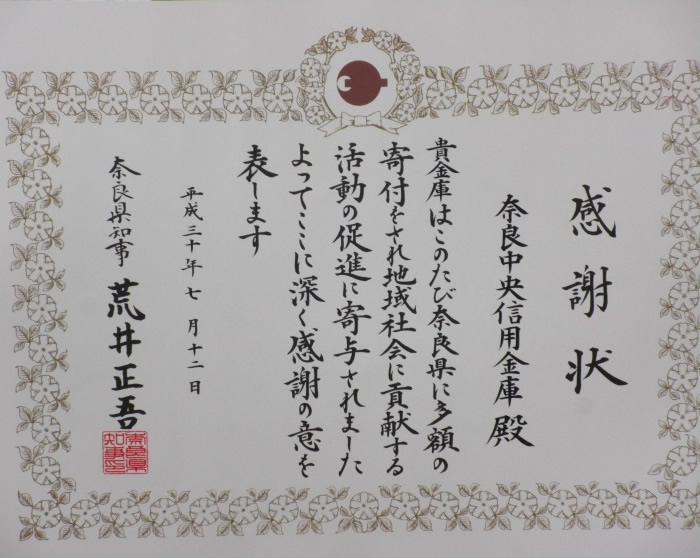 感謝状
奈良中央信用金庫 殿
貴金庫はこのたび奈良県に多額の
寄付をされ地域社会に貢献する
活動の促進に寄与されました
よってここに深く感謝の意を
表します
平成三十年七月十二日
奈良県知事 荒井正吾
奈良県
知事印